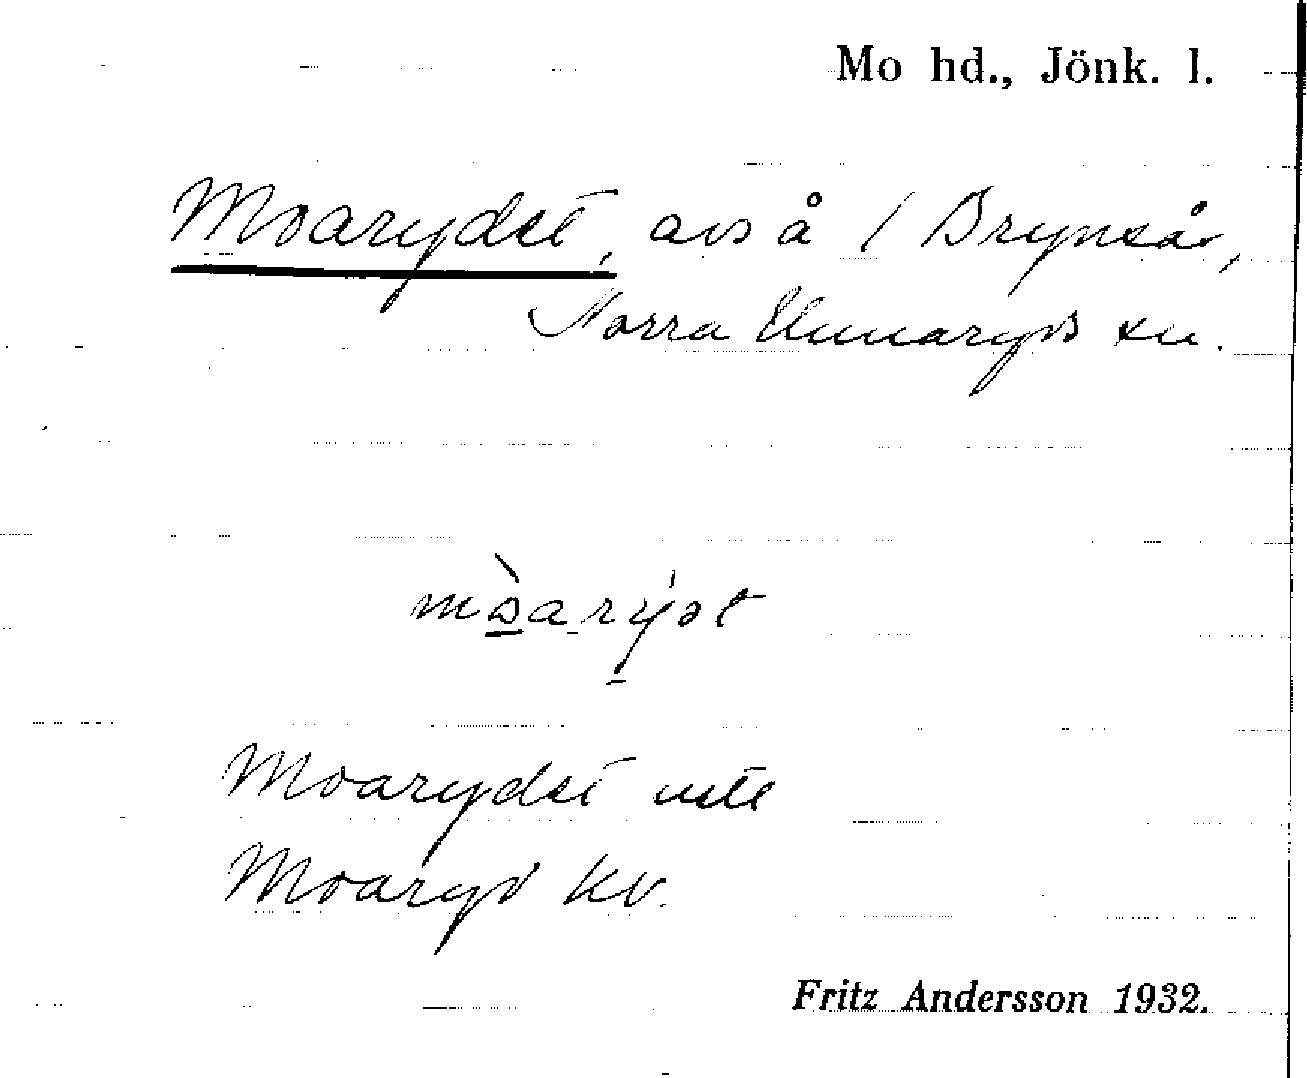 Mo hd., Jönk. l.
Moarydet, avs å / Brynsås,
Norra Unnaryds sn.
Moarydet
Moaryd kv.
Fritz Andersson 1932.